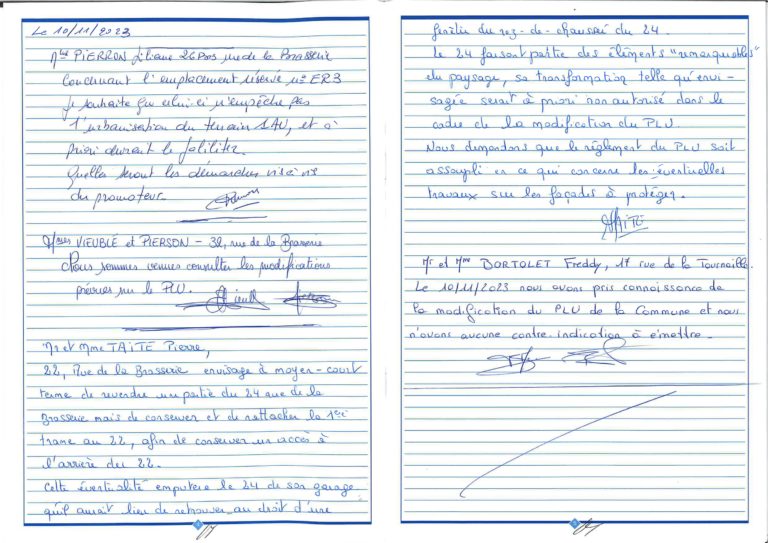 Le 10/11/2023
Mme PIERRON Liliane 26 bis rue de la Brasserie
Concernant l'emplacement réservé n° ER3
Je souhaite que celui-ci n'empêche pas
l'urbanisation du terrain 1AU, et à
priori devrait le faliliter.
Quelles seront les démarches vis à vis
du promoteur.
Mmes VIEUBLÉ et PIERSON - 32, rue de la Brasserie
Nous sommes venues consulter les modifications
prévues sur le PLU.
Mr et Mme TAITE Pierre,
22, Rue de la Brasserie envisage à moyen-court
terme de revendre un partie du 24 rue de la
Brasserie mais de conserver et de rattacher la 1ère
trame au 22, afin de conserver un accès à
l'arrière du 22.
Cette éventualité emputera le 24 de son garage
qu'il aurait lieu de retrouver au droit d'une
fenêtre du rez-de-chaussé du 24.
Le 24 faisant partie des éléments "remarquables"
du paysage, sa transformation telle qu'envi-
sagée serait à priori non autorisé dans le
cadre de la modification du PLU.
Nous demandons que le règlement du PLU soit
assoupli en ce qui concerne les éventuelles
travaux sur les façades à protéger.
TAITE
Mr et Mme DORTOLET Freddy, 17 rue de la Tournaille.
Le 10/11/2023 nous avons pris connaissance de
la modification du PLU de la Commune et nous
n'avons aucune contre indication à émettre.